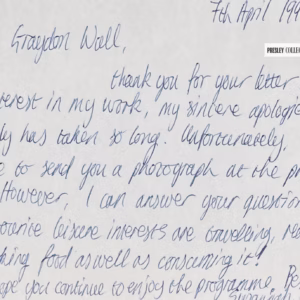 7th April 199
Graydon Wall,
PRESLEY COLLEC
thank you for your letter
terest in my work, my sincere apologie
ly has taken so long. Unfortunately,
e to send you a photograph at the pr
However, I can answer your question
leisure interests are travelling, re
king food as well as consuming it!
ope you continue to enjoy the programme.